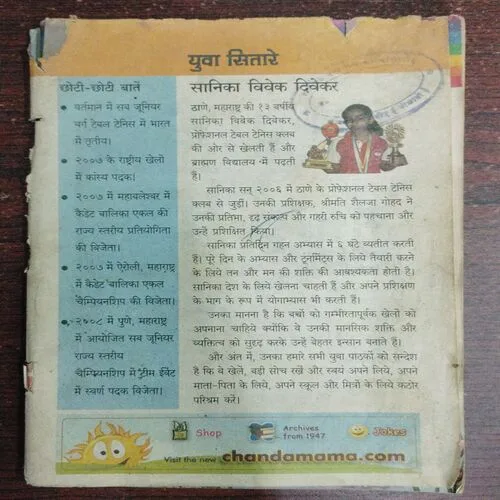 युवा सितारे
छोटी-छोटी बातें
वर्तमान में सब जूनियर
वर्ग टेबल टेनिस में भारत
में तृतीय।
२००७ के राष्ट्रीय खेलों
में कांस्य पदक।
२००७ में महाबलेश्वर में
कैडेट बालिका एकल की
राज्य स्तरीय प्रतियोगिता
की विजेता।
२००७ में ऐरोली, महाराष्ट्र
में कैडेट बालिका एकल
चैम्पियनशिप की विजेता।
२००८ में पुणे, महाराष्ट्र
में आयोजित सब जूनियर
राज्य स्तरीय
चैम्पियनशिप में टीम ईवेंट
में स्वर्ण पदक विजेता।
सानिका विवेक दिवेकर
ठाणे, महाराष्ट्र की १३ वर्षीय
सानिका विवेक दिवेकर,
प्रोफेशनल टेबल टेनिस क्लब
की ओर से खेलती हैं और
ब्राह्मण विद्यालय में पढ़ती
हैं।
सानिका सन् २००६ में ठाणे के प्रोफेशनल टेबल टेनिस
क्लब से जुड़ीं। उनकी प्रशिक्षक, श्रीमति शैलजा गोहद ने
उनकी प्रतिभा, दृढ़ संकल्प और गहरी रुचि को पहचाना और
उन्हें प्रशिक्षित किया।
सानिका प्रतिदिन गहन अभ्यास में ६ घंटे व्यतीत करती
हैं। पूरे दिन के अभ्यास और टूर्नामेंट्स के लिये तैयारी करने
के लिये तन और मन की शक्ति की आवश्यकता होती है।
सानिका देश के लिये खेलना चाहती हैं और अपने प्रशिक्षण
के भाग के रूप में योगाभ्यास भी करती हैं।
उनका मानना है कि बच्चों को गम्भीरतापूर्वक खेलों को
अपनाना चाहिये क्योंकि वे उनकी मानसिक शक्ति और
व्यक्तित्व को सुदृढ़ करके उन्हें बेहतर इन्सान बनाते हैं।
और अंत में, उनका हमारे सभी युवा पाठकों को सन्देश
है कि वे खेलें, बड़ी सोच रखें और स्वयं अपने लिये, अपने
माता-पिता के लिये, अपने स्कूल और मित्रों के लिये कठोर
परिश्रम करें।
Shop
Archives
from 1947
Jokes
Visit the new chandamama.com